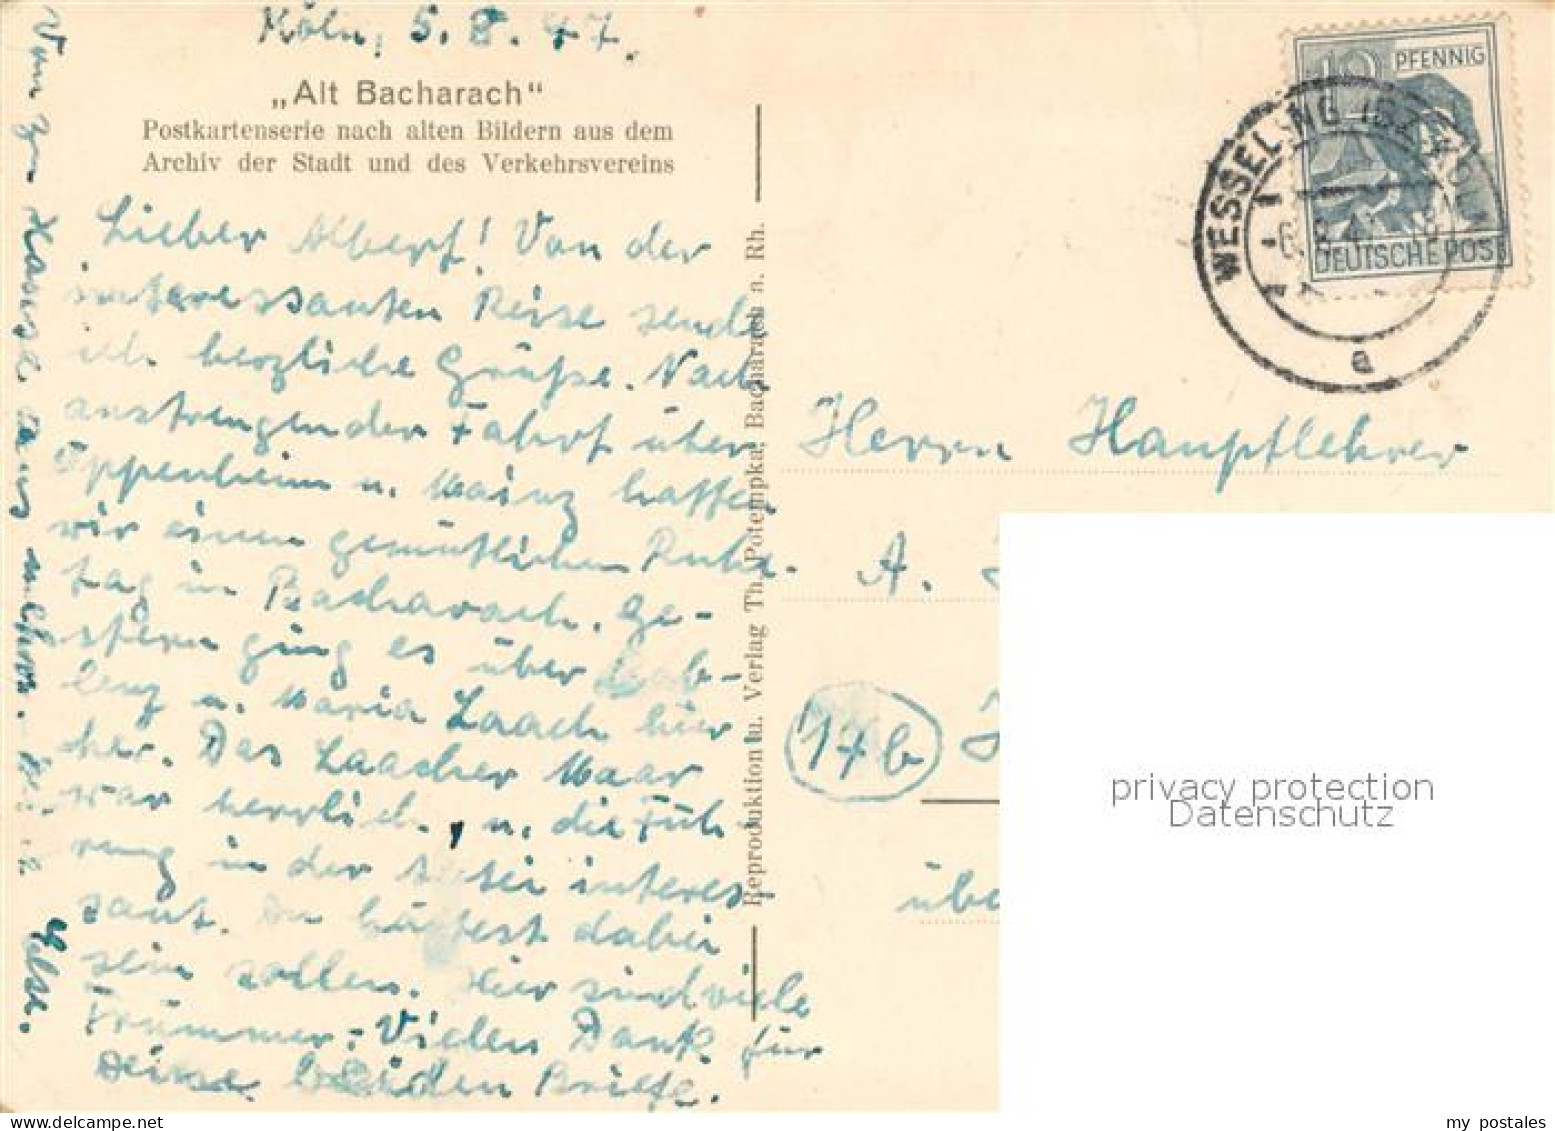 Köln, 5. 8. 47.
„Alt Bacharach"
Postkartenserie nach alten Bildern aus dem
Archiv der Stadt und des Verkehrsvereins
Lieber Albert! Von der
interessanten Reise sende
ich herzliche Grüße. Nach
anstrengender Fahrt über
Oppenheim u. Mainz hatten
wir einen gemütlichen Ruhe-
tag in Bacharach. Ge-
stern ging es über Kob-
lenz u. Maria Laach hier
her. Das Laacher Maar
war herrlich, u. die Füh
rung in der Abtei interes
sant. Du hättest dabei
sein sollen. Hier sind viele
Trümmer. Vielen Dank für
Deine beiden Briefe.
Else.
Reproduktion u. Verlag Th. Potempka, Bacharach a. Rh.
PFENNIG
DEUTSCHE POST
WESSELING (BZ. KÖLN)
a
Herrn Hauptlehrer
A.
17b
übe
privacy protection
Datenschutz
my postales